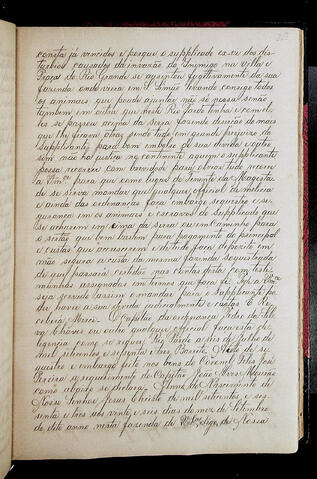 consta já vencidos e porque o supplicado ex-vi dos dis-
turbios causados da invazão do Inimigo na Villa e
Praça do Rio Grande se ausentou fugitivamente da sua
fazenda onde vivia em levando consigo todos
os animaes que poude ajuntar não só nossa sinão
tambem em outros que neste Rio Pardo tinha e com el-
les se passou acima da Serra fazendo descrição de mais
que lhe ficarem atraz sendo tudo em grande prejuizo do
supplicante para bom embolso de sua divida e outro
sim não ha justiça no continente aquem o supplicante
possa recorrer com brevidade para obviar tudo recorre
a Vmce. para que como lugar de Tenente da Magestade
de se sirva mandar que qualquer official de milicia
e ainda das ordenanças faca embargo sequestro e se-
gurança em os animaes e escravos do supplicado que
se acharem em cima da Serra ou em caminho para
o sertão que bem bastem para pagamento do principal
e custas que accrescerem e de tudo faca deposito em
mão segura a custa da mesma fazenda sequestrada
de que passará certidão nas costas desta com teste-
munhas assignados em termos que faca fé. Seja Vmce.
seja servido assim o mandar para o supplicante po-
der haver a sua divida judicialmente e custas E Re-
ceberá Mercê. O Capitão da ordenança Pedro da Sil-
va Chaves ou outro qualquer official faca esta di-
ligencia como se requer. Rio Pardo a seis de Julho de
mil setecentos e sessenta e trez Barreto. Auto de se-
questro e embargo feito nos bens do Coronel Felix José
Pereira a requerimento do Capitão João Alves Mourão
como abaixo se declara. Anno do Nascimento de
Nosso Senhor Jesus Christo de mil setecentos e ses-
senta e tres aos vinte e seis dias do mez de Setembro
do dito anno nesta fazenda de de Nossa